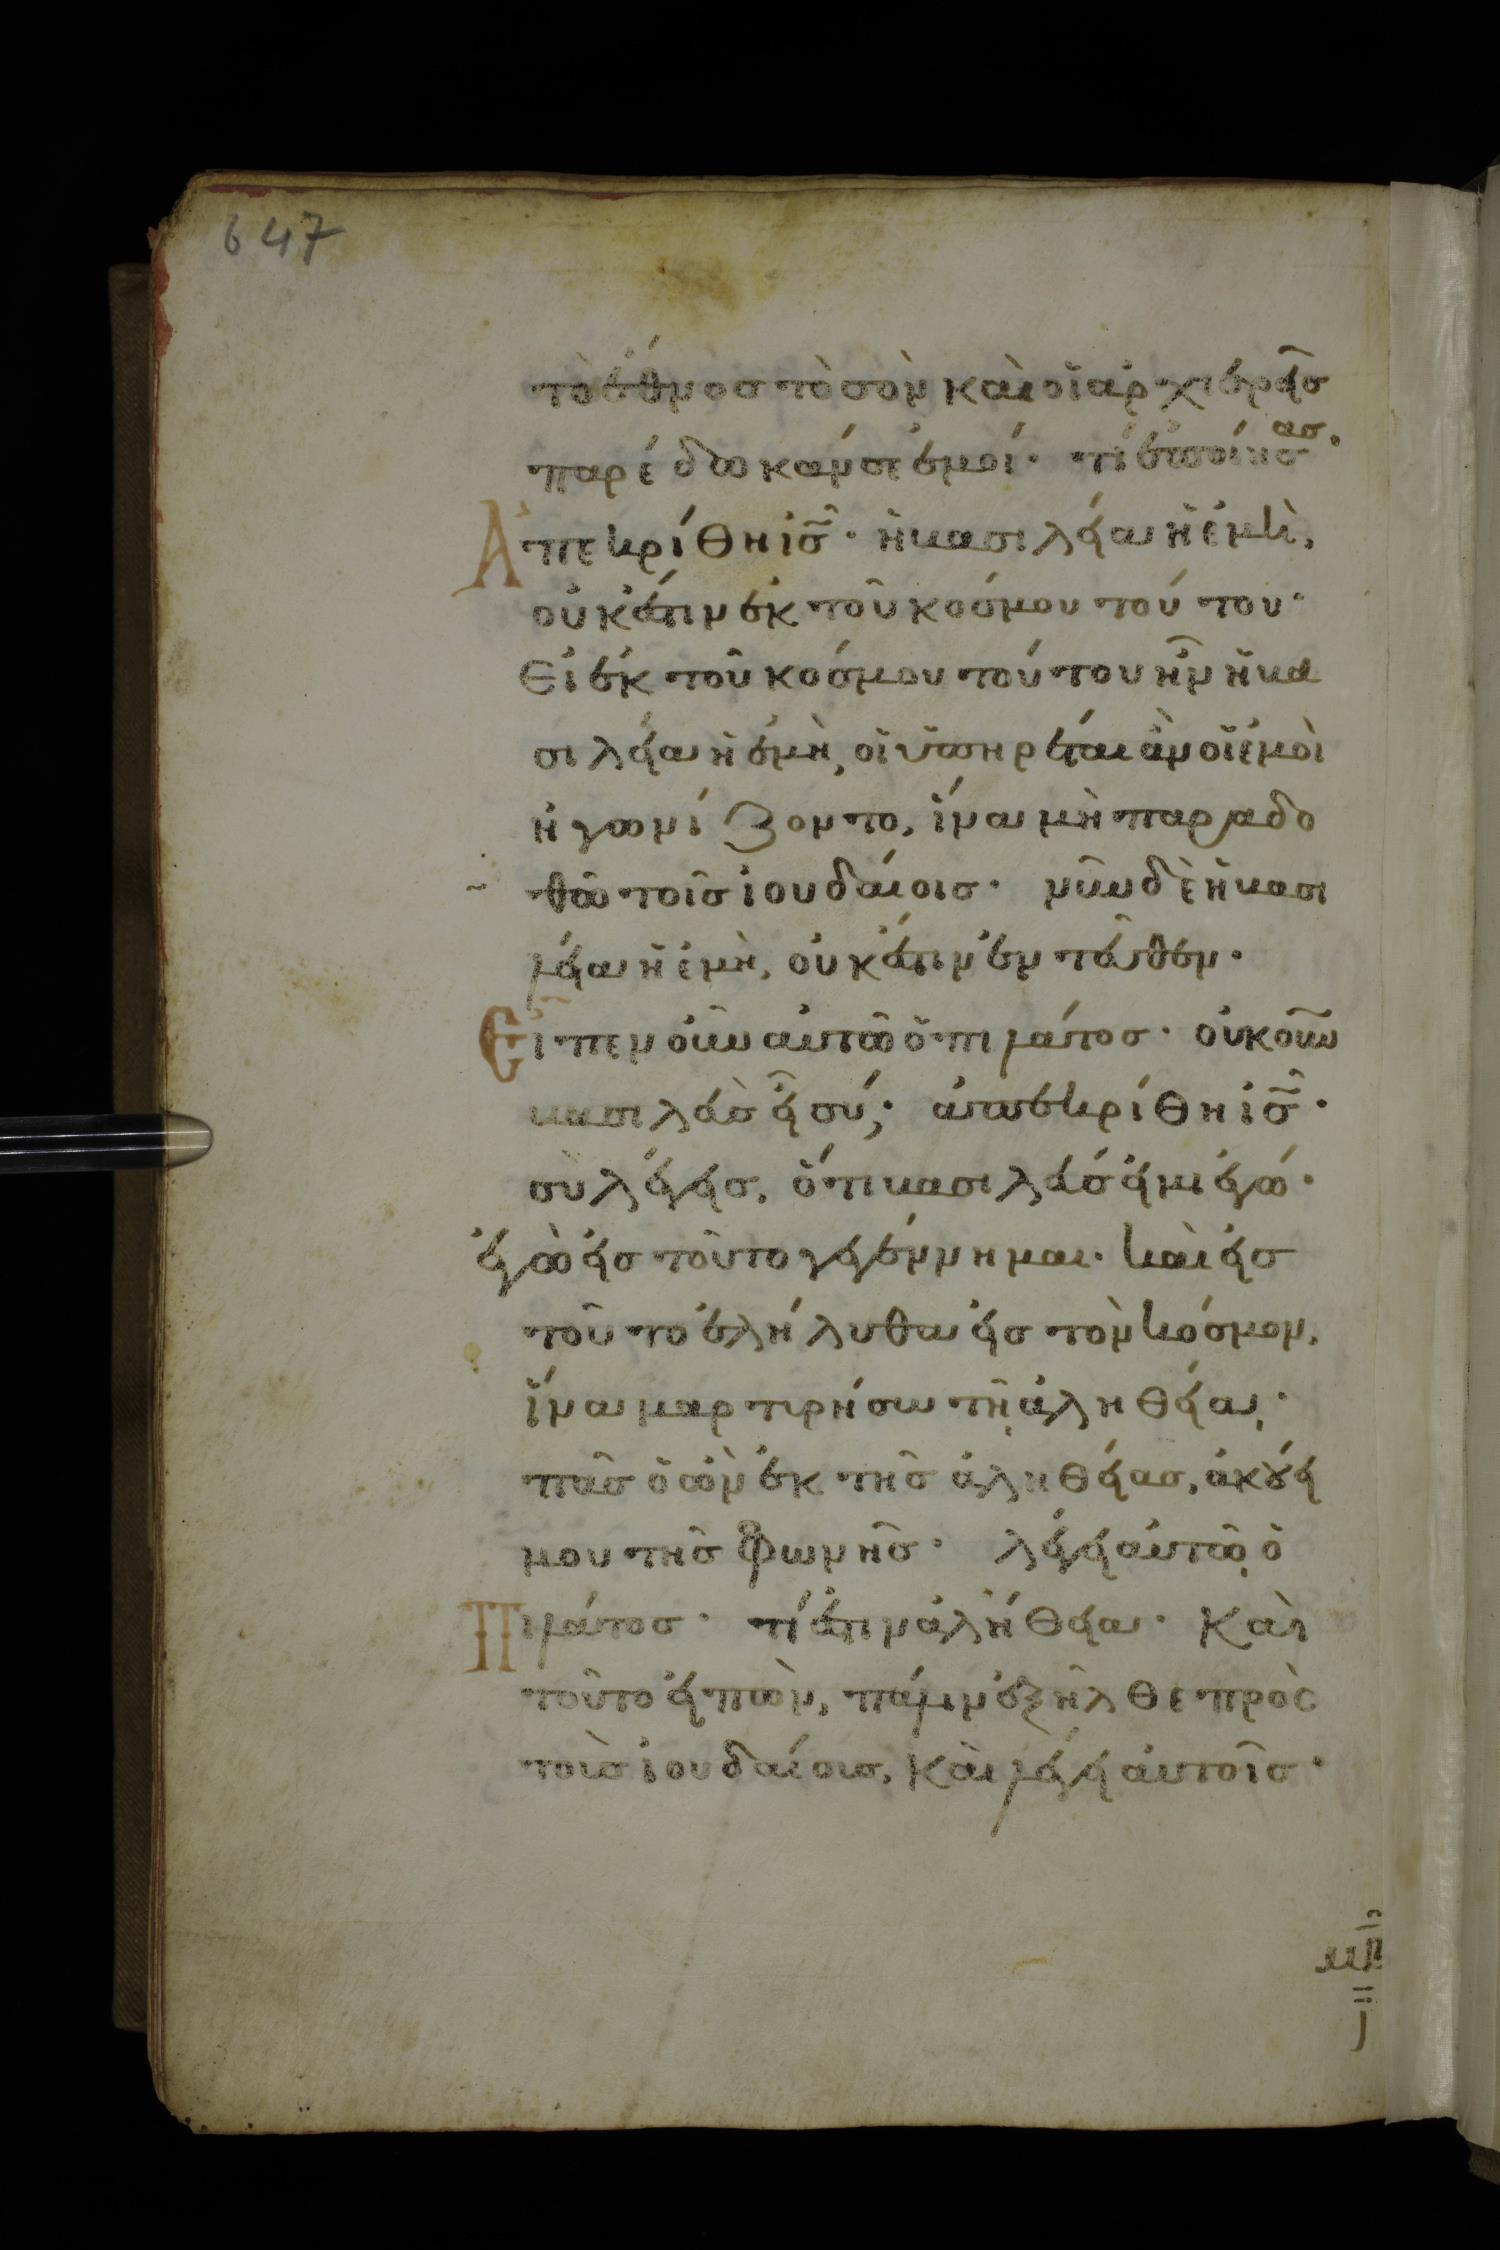 647
τὸ ἔθνος τὸ σὸν καὶ οἱ ἀρχιερεῖς
παρέδωκάν σε ἐμοί· τί ἐποίησας.
Ἀπεκρίθη ἰ̅ς̅· ἡ βασιλεία ἡ ἐμὴ,
οὐκ ἔστιν ἐκ τοῦ κόσμου τούτου·
Εἰ ἐκ τοῦ κόσμου τούτου ἦν ἡ βα
σιλεία ἡ ἐμὴ, οἱ ὑπηρέται ἂν οἱ ἐμοὶ
ἠγωνίζοντο, ἵνα μὴ παραδο
θῶ τοῖς ἰουδαίοις· νῦν δὲ ἡ βασι
λεία ἡ ἐμὴ, οὐκ ἔστιν ἐντεῦθεν·
Εἶπεν οὖν αὐτῶ ὁ πιλάτος· οὐκοῦν
βασιλεὺς εἶ σύ; ἀπεκρίθη ἰ̅ς̅·
σὺ λέγεις, ὅτι βασιλεύς εἰμι ἐγώ·
ἐγὼ εἰς τοῦτο γεγέννημαι· καὶ εἰς
τοῦτο ἐλήλυθα εἰς τὸν κόσμον,
ἵνα μαρτυρήσω τῇ ἀληθείᾳ·
πᾶς ὁ ὢν ἐκ τῆς ἀληθείας, ἀκούει
μου τῆς φωνῆς· λέγει αὐτῷ ὁ
Πιλάτος· τί ἐστιν ἀλήθεια· Καὶ
τοῦτο εἰπὼν, πάλιν ἐξῆλθε πρὸς
τοὺς ἰουδαίους, καὶ λέγει αὐτοῖς·